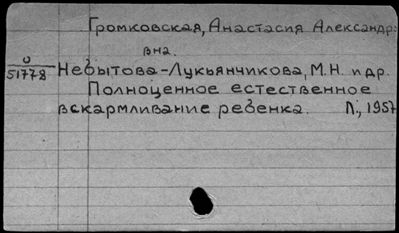 Громковская, Анастасия Александр-
вна.
U
51778 Небытова-Лукьянчикова, М.Н. и др.
Полноценное естественное
вскармливание ребенка. Л., 1957